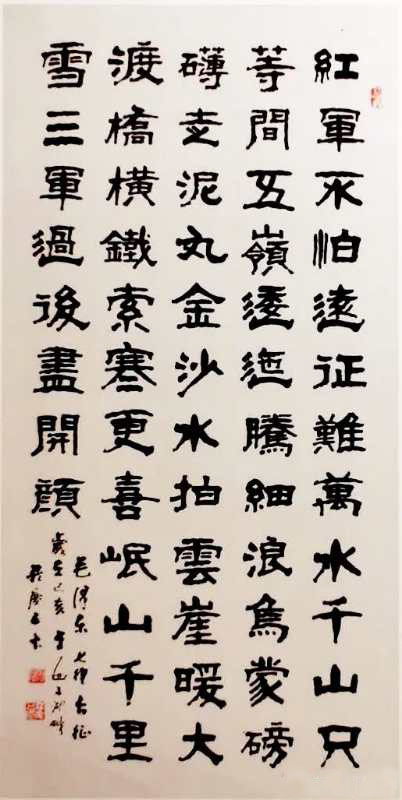 紅軍不怕遠征難萬水千山只
等間五嶺逶迤騰細浪烏蒙磅
礴走泥丸金沙水拍雲崖暖大
渡橋橫鐵索寒更喜岷山千里
雪三軍過後盡開顏
毛澤東七律長征
歲在己亥